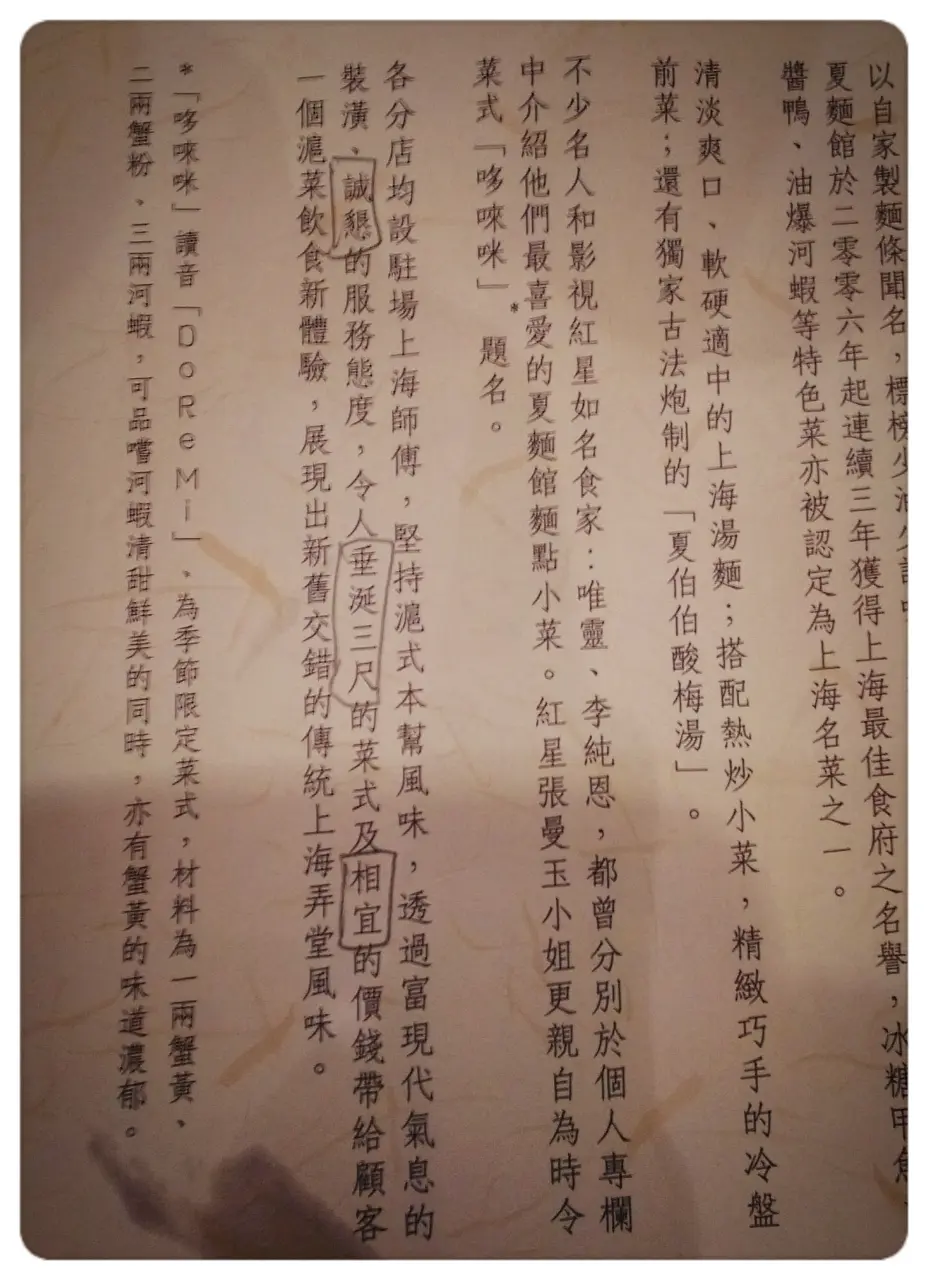 以自家製麵條聞名，標榜少油少
夏麵館於二零零六年起連續三年獲得上海最佳食府之名譽，冰糖甲魚、
醬鴨、油爆河蝦等特色菜亦被認定為上海名菜之一。
清淡爽口、軟硬適中的上海湯麵；搭配熱炒小菜，精緻巧手的冷盤
前菜；還有獨家古法炮制的「夏伯伯酸梅湯」。
不少名人和影視紅星如名食家：唯靈、李純恩，都曾分別於個人專欄
中介紹他們最喜愛的夏麵館麵點小菜。紅星張曼玉小姐更親自為時令
菜式「哆唻咪」*題名。
各分店均設駐場上海師傅，堅持滬式本幫風味，透過富現代氣息的
裝潢、誠懇的服務態度，令人垂涎三尺的菜式及相宜的價錢帶給顧客
一個滬菜飲食新體驗，展現出新舊交錯的傳統上海弄堂風味。
*「哆唻咪」讀音「DoReMi」、為季節限定菜式，材料為一兩蟹黃、
二兩蟹粉、三兩河蝦，可品嚐河蝦清甜鮮美的同時，亦有蟹黃的味道濃郁。